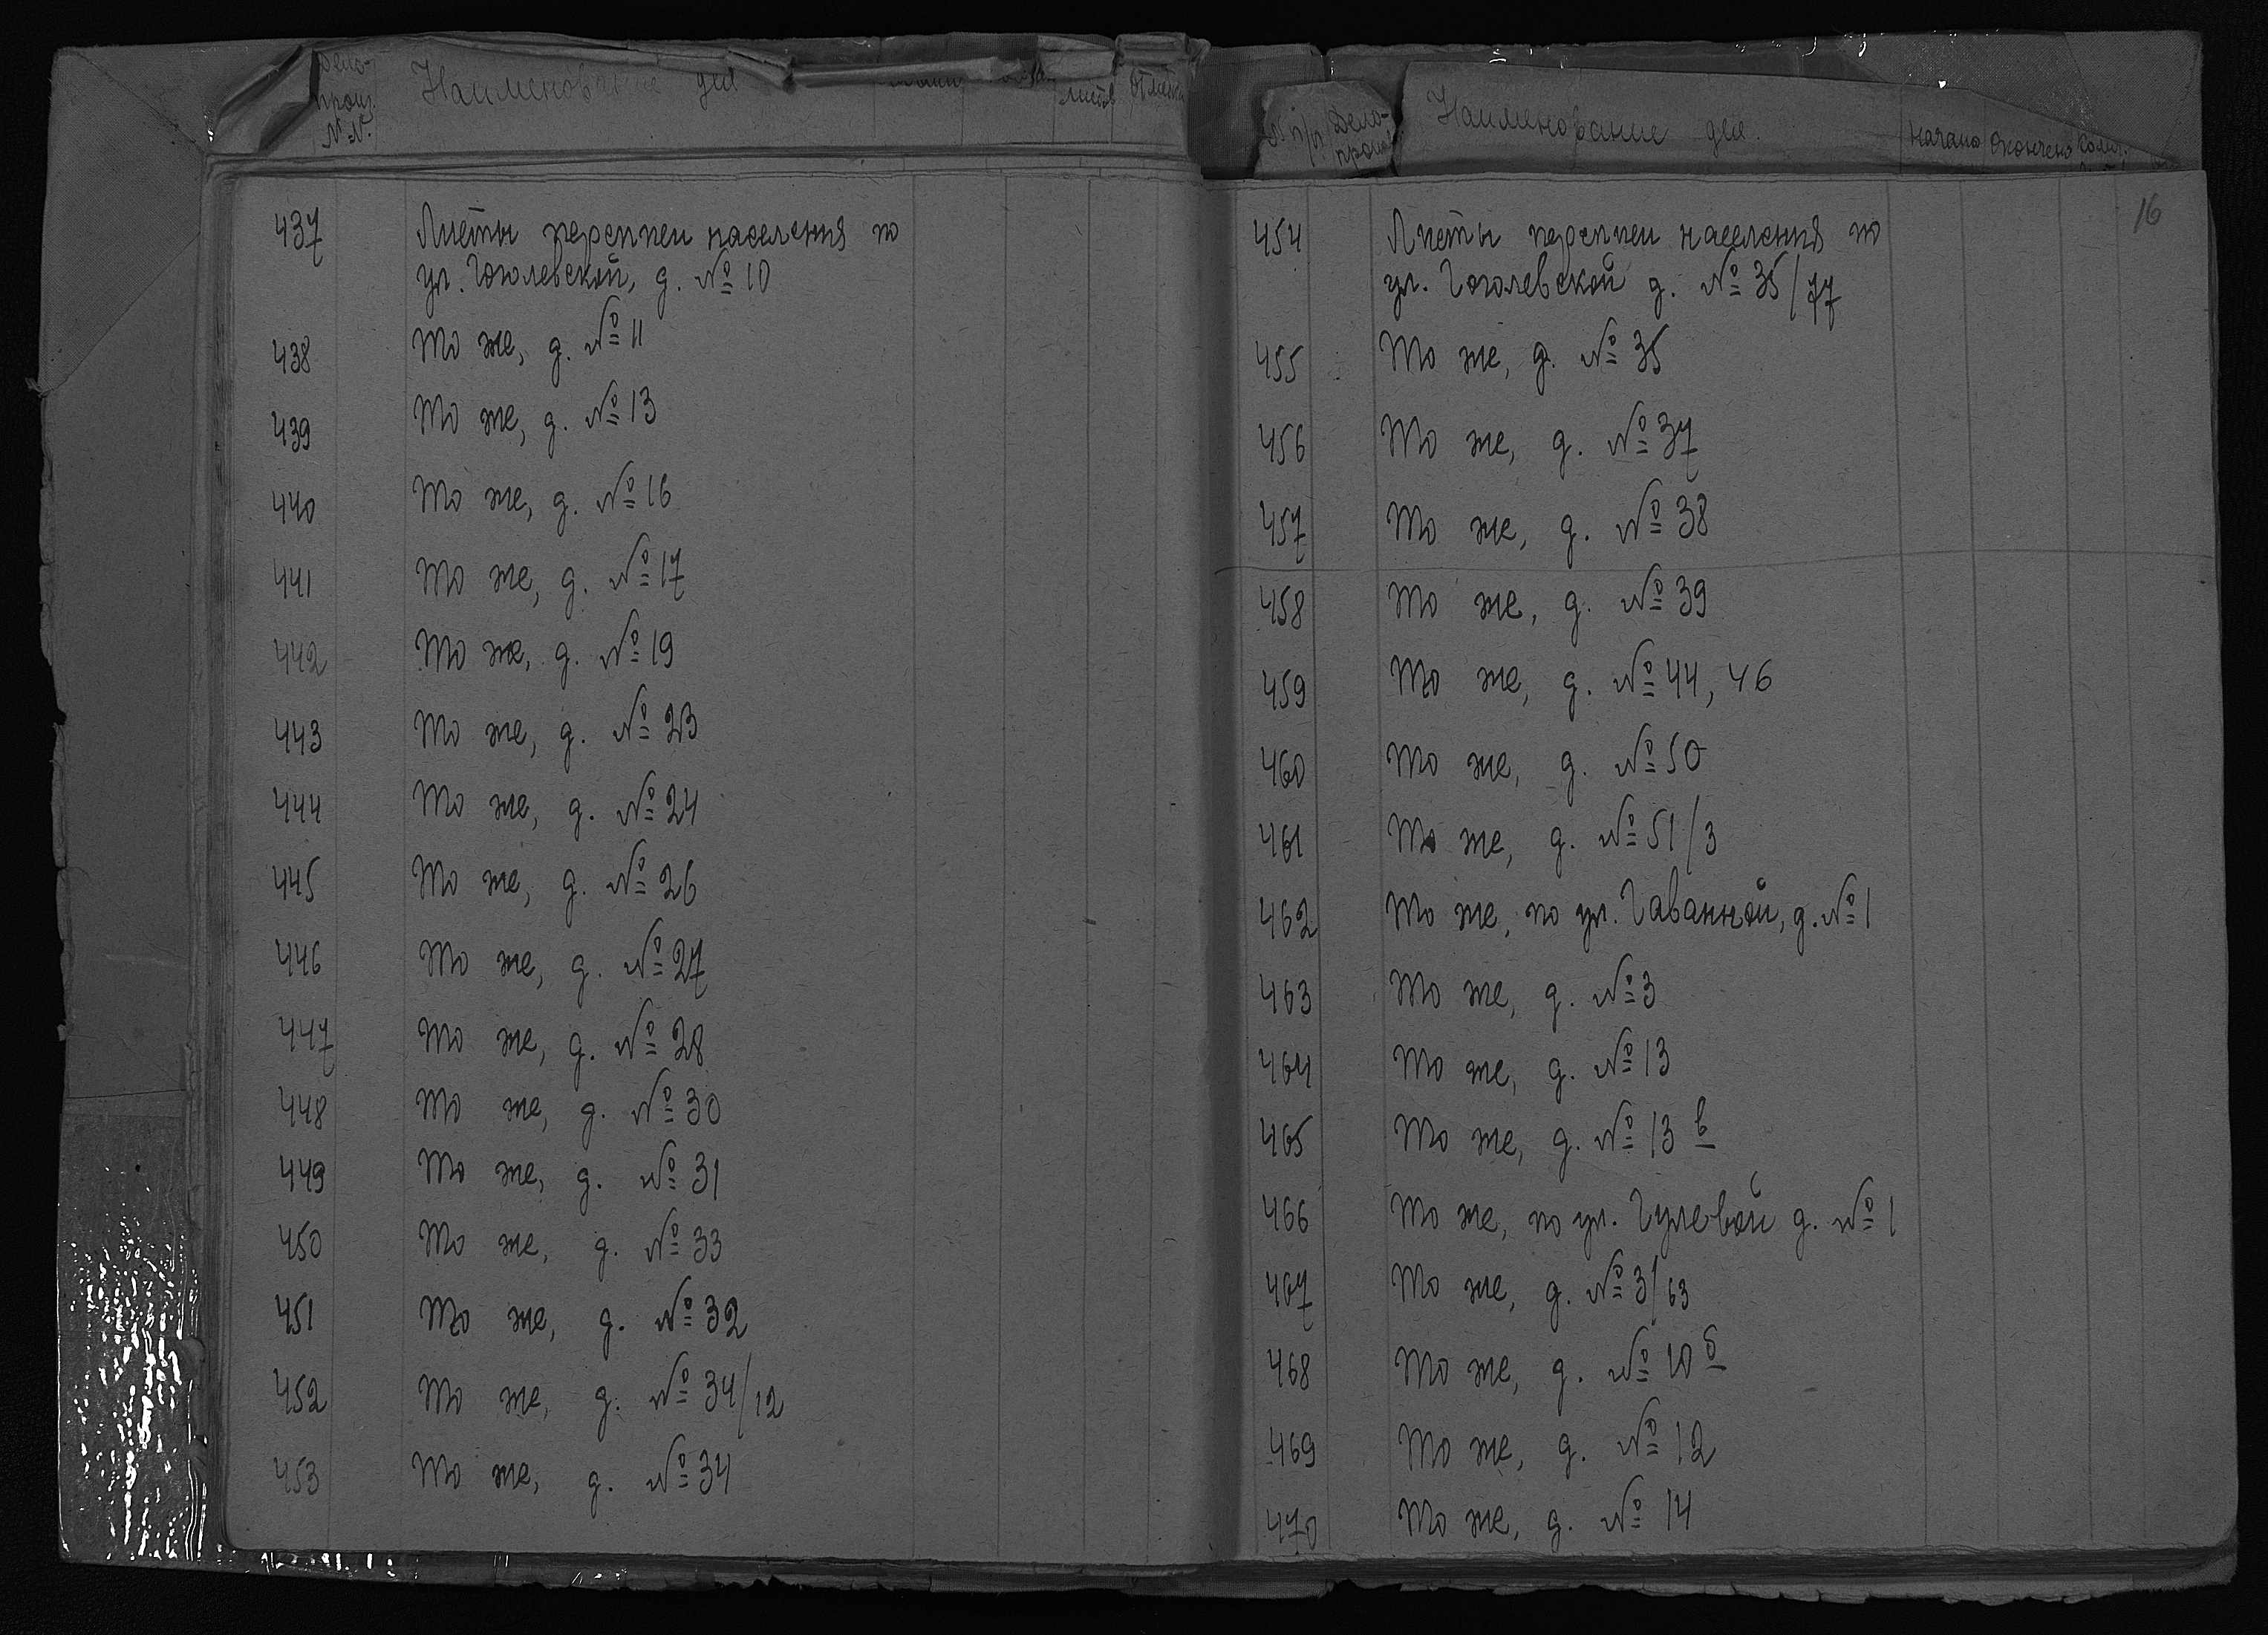 Дело-
произ.
№№
Наименование дел
листов
Отметка
437 Листы переписи населения по
ул. Гоголевской, д. № 10
438 То же, д. № 11
439 То же, д. № 13
440 То же, д. № 16
441 То же, д. № 17
442 То же, д. № 19
443 То же, д. № 23
444 То же, д. № 24
445 То же, д. № 26
446 То же, д. № 27
447 То же, д. № 28
448 То же, д. № 30
449 То же, д. № 31
450 То же, д. № 33
451 То же, д. № 32
452 То же, д. № 34/12
453 То же, д. № 34
№ п/п
Дело-
произ.
Наименование дел.
Начато
Окончено
Колич.
16
454 Листы переписи населения по
ул. Гоголевской д. № 35/77
455 То же, д. № 35
456 То же, д. № 37
457 То же, д. № 38
458 То же, д. № 39
459 То же, д. № 44, 46
460 То же, д. № 50
461 То же, д. № 51/3
462 То же, по ул. Гаванной, д. № 1
463 То же, д. № 3
464 То же, д. № 13
465 То же, д. № 13 в
466 То же, по ул. Гулевой д. № 1
467 То же, д. № 3/63
468 То же, д. № 10 б
469 То же, д. № 12
470 То же, д. № 14